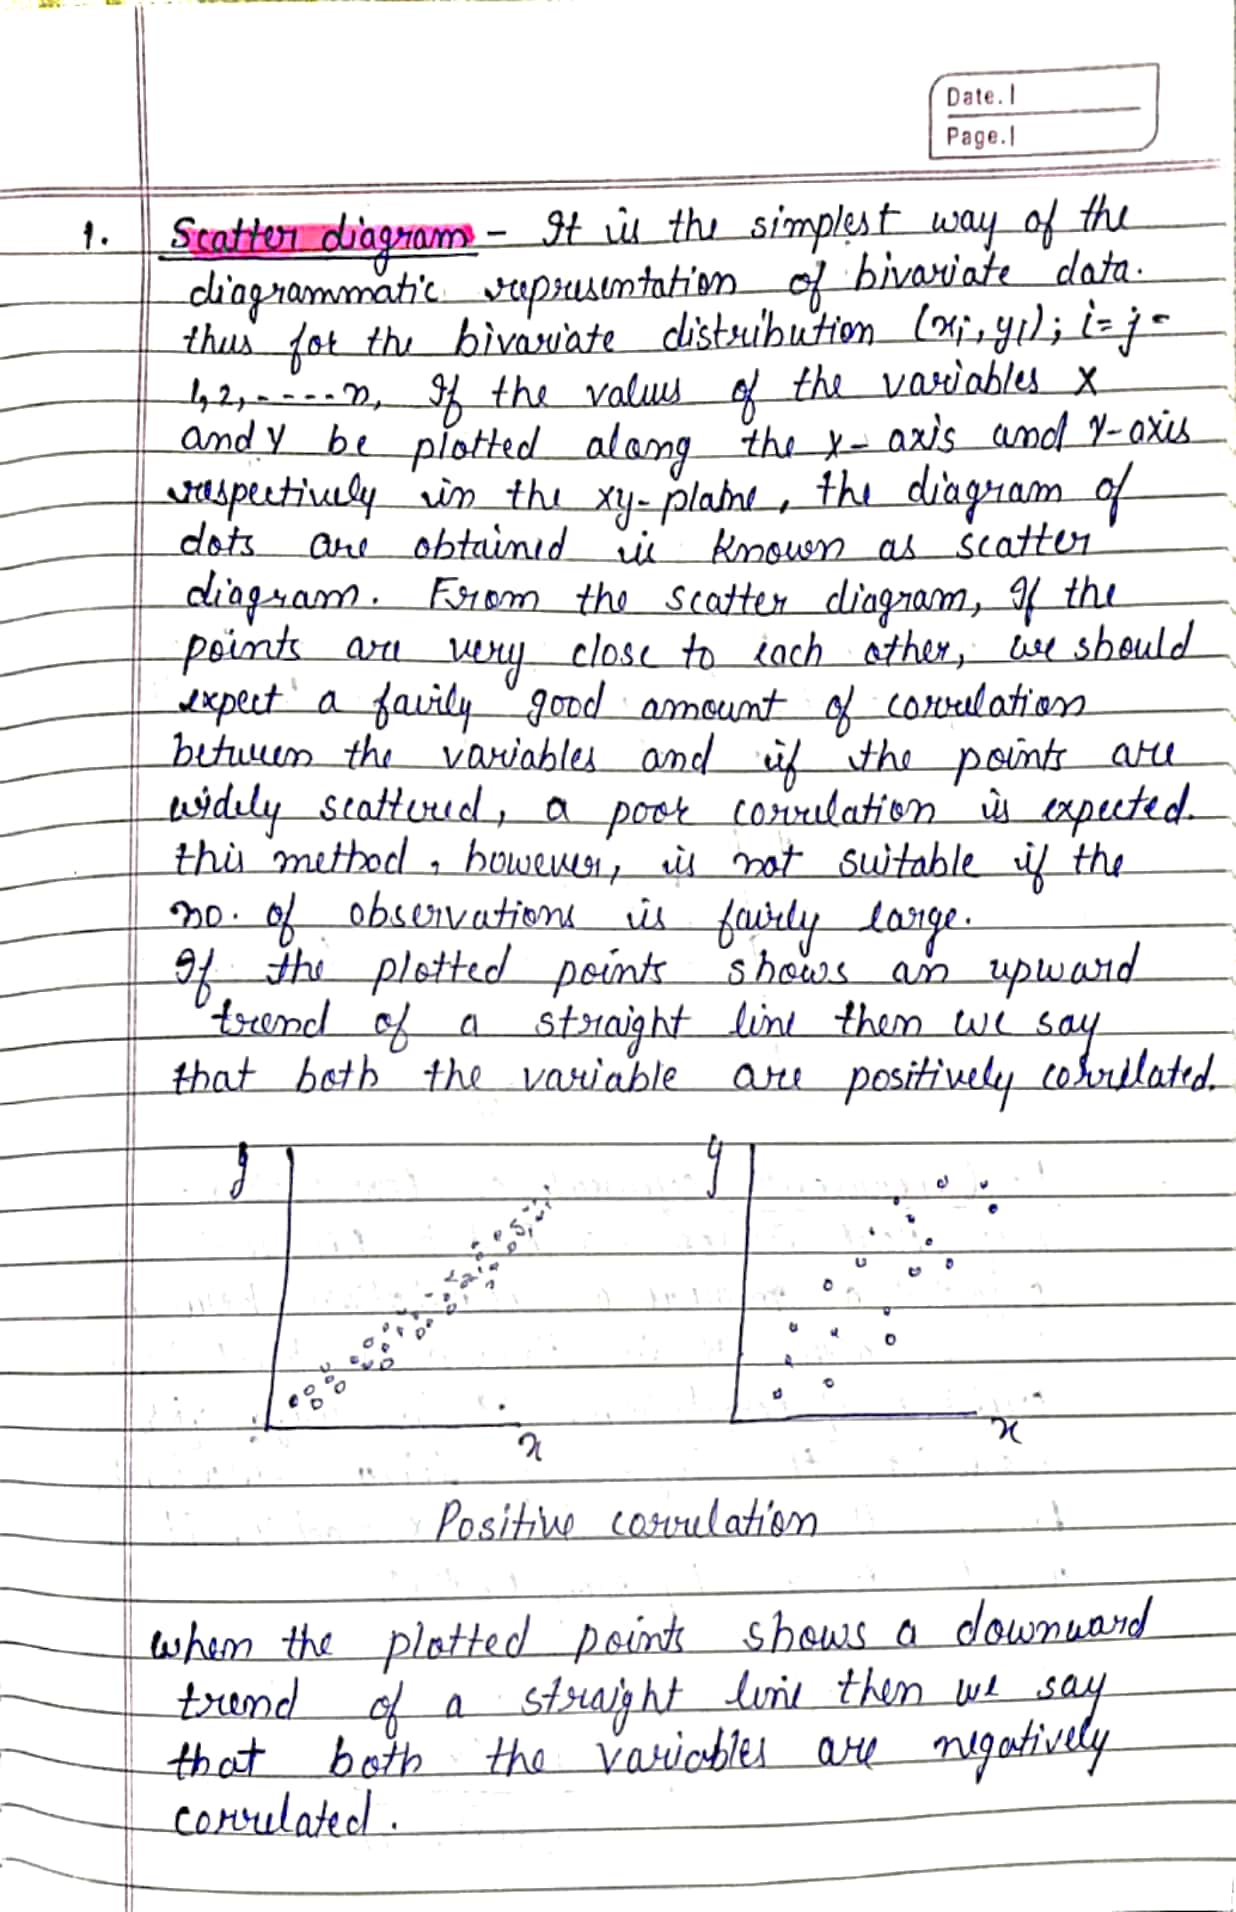 Date.
Page.
1. Scatter diagram - It is the simplest way of the
diagrammatic representation of bivariate data.
thus for the bivariate distribution (xi, yi); i = j =
1, 2, ----- n, If the values of the variables X
and Y be plotted along the X- axis and Y-axis
respectively in the xy-plane, the diagram of
dots are obtained is known as scatter
diagram. From the scatter diagram, If the
points are very close to each other, we should
expect a fairly good amount of correlation
between the variables and if the points are
widely scattered, a poor correlation is expected.
this method, however, is not suitable if the
no. of observations is fairly large.
If the plotted points shows an upward
trend of a straight line then we say
that both the variable are positively correlated.
y y
x x
Positive correlation
when the plotted points shows a downward
trend of a straight line then we say
that both the variables are negatively
correlated.